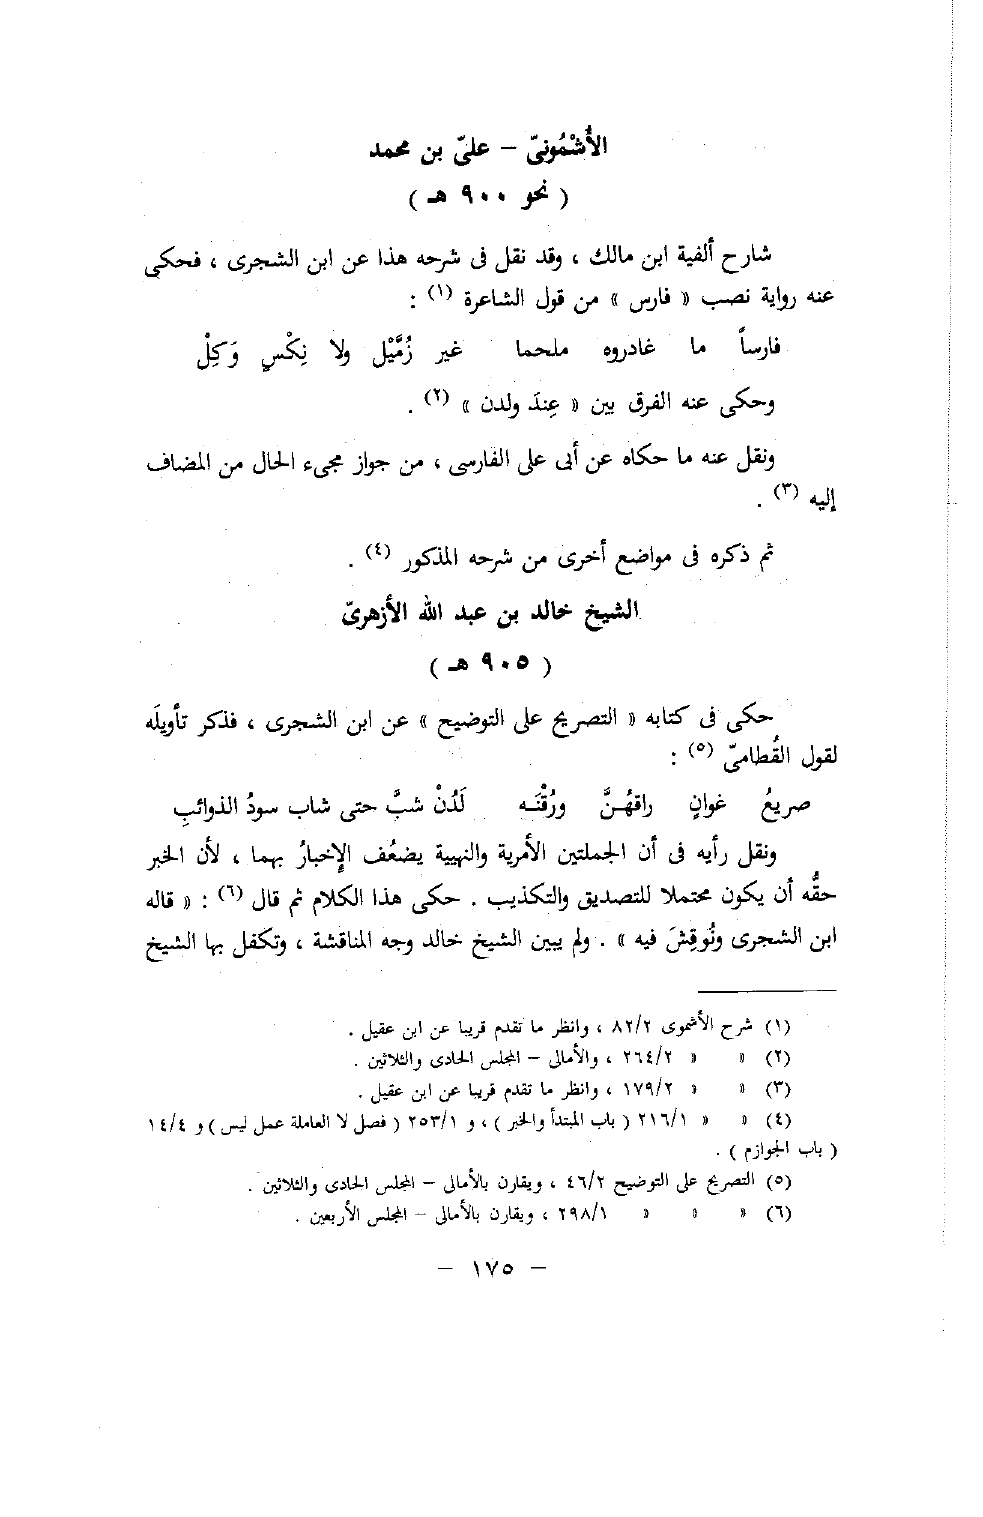 الأُشْمُونىّ – علىّ بن محمد
( نحو ٩٠٠ هـ )
شارح ألفية ابن مالك ، وقد نقل فى شرحه هذا عن ابن الشجرى ، فحكى
عنه رواية نصب « فارس » من قول الشاعرة (١) :
فارساً ما غادروه ملحما غير زُمَّيْل ولا نِكْسٍ وَكِلْ
وحكى عنه الفرق بين « عِندَ ولدن » (٢) .
ونقل عنه ما حكاه عن أبى على الفارسى ، من جواز مجىء الحال من المضاف
إليه (٣) .
ثم ذكره فى مواضع أخرى من شرحه المذكور (٤) .
الشيخ خالد بن عبد الله الأزهرىّ
( ٩٠٥ هـ )
حكى فى كتابه « التصريح على التوضيح » عن ابن الشجرى ، فذكر تأويلَه
لقول القُطامىّ (٥) :
صريعُ غوانٍ راقهُنَّ ورُقْنَه لَدُنْ شبَّ حتى شاب سودُ الذوائبِ
ونقل رأيه فى أن الجملتين الأمرية والنهيية يضعُف الإخبارُ بهما ، لأن الخبر
حقُّه أن يكون محتملا للتصديق والتكذيب . حكى هذا الكلام ثم قال (٦) : « قاله
ابن الشجرى ونُوقِشَ فيه » . ولم يبين الشيخ خالد وجه المناقشة ، وتكفل بها الشيخ
(١) شرح الأشموى ٨٢/٢ ، وانظر ما تقدم قريبا عن ابن عقيل .
(٢) « « ٢٦٤/٢ ، والأمالى – المجلس الحادى والثلاثين .
(٣) « « ١٧٩/٢ ، وانظر ما تقدم قريبا عن ابن عقيل .
(٤) « « ٢١٦/١ ( باب المبتدأ والخبر ) ، و ٢٥٣/١ ( فصل لا العاملة عمل ليس ) و ١٤/٤
( باب الجوازم ) .
(٥) التصريح على التوضيح ٤٦/٢ ، ويقارن بالأمالى – المجلس الحادى والثلاثين .
(٦) « « « ٢٩٨/١ ، ويقارن بالأمالى – المجلس الأربعين .
– ١٧٥ –